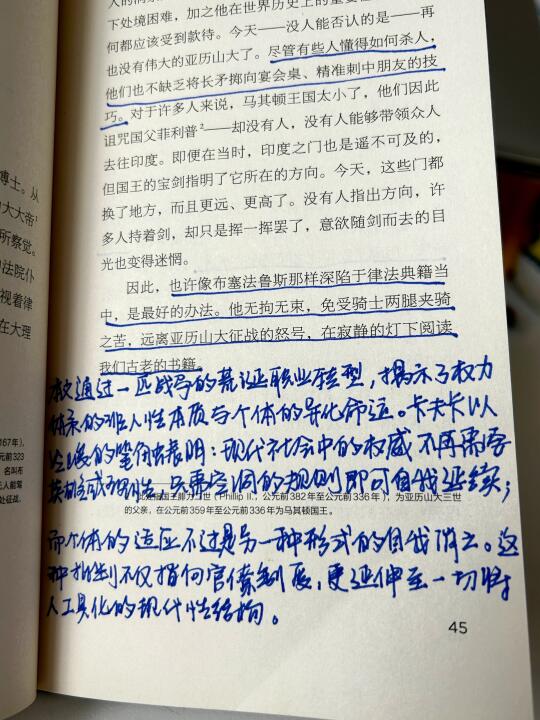 下处境困难，加之他在世界历史上的重要
何都应该受到款待。今天——没人能否认的是——再
也没有伟大的亚历山大了。尽管有些人懂得如何杀人，
他们也不缺乏将长矛掷向宴会桌、精准刺中朋友的技
巧。对于许多人来说，马其顿王国太小了，他们因此
诅咒国父菲利普²——却没有人，没有人能够带领众人
去往印度。即便在当时，印度之门也是遥不可及的，
但国王的宝剑指明了它所在的方向。今天，这些门都
换了地方，而且更远、更高了。没有人指出方向，许
多人持着剑，却只是挥一挥罢了，意欲随剑而去的目
光也变得迷惘。
因此，也许像布塞法鲁斯那样深陷于律法典籍当
中，是最好的办法。他无拘无束，免受骑士两腿夹骑
之苦，远离亚历山大征战的怒号，在寂静的灯下阅读
我们古老的书籍。
本文通过一匹战马的荒诞职业转型，揭示了权力
体系的非人性本质与个体的异化命运。卡夫卡以
的笔触表明：现代社会中的权威不再需要
英雄式 ，只需空洞的规则即可自我延续；
国王腓力二世（Phillip II.，公元前382年至公元前336年），为亚历山大三世
的父亲，在公元前359年至公元前336年为马其顿国王。
而个体的适应不过是另一种形式的自我消亡。这
种批判不仅指向官僚制度，更延伸至一切将
人工具化的现代性结构。
45
博士。从
大大帝¹
所察觉。
法院仆
视着律
在大理
167年），
元前323
，名叫布
无人能驾
处征战，